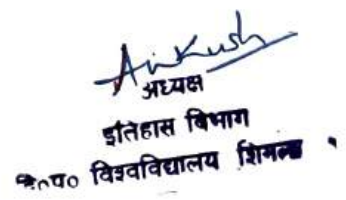 Ankush
अध्यक्ष
इतिहास विभाग
हि०प्र० विश्वविद्यालय शिमला